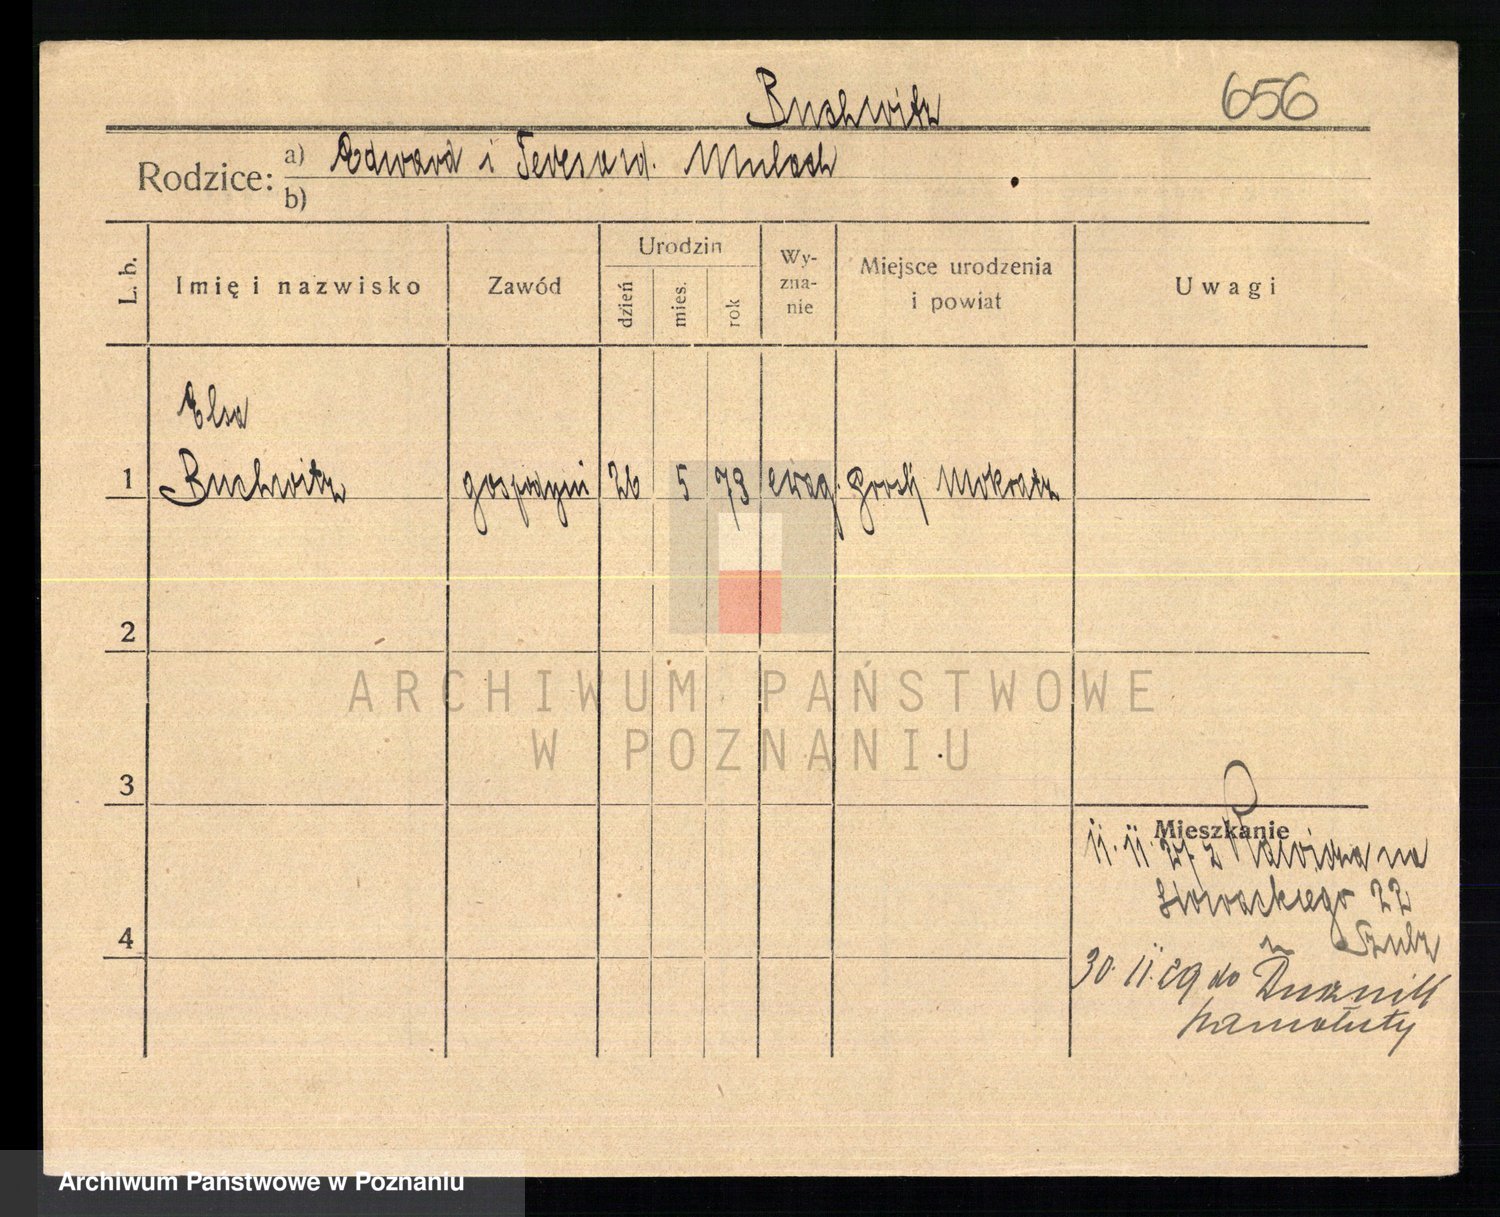 Buchwitz 656
Rodzice: a) Edward i Teresa rd. Mulach
b)
L. b. Imię i nazwisko Zawód Urodzin dzień mies. rok Wy-zna-nie Miejsce urodzenia i powiat Uwagi
Elsa
1 Buchwitz gospodyni 26 5 73 ewag. Mokratz
2
3
Mieszkanie
11. 11. 27 z Rawicza na
Słowackiego 22
Szulz
4
30. 11. 29 do
Szamotuły
ARCHIWUM PAŃSTWOWE
W POZNANIU
Archiwum Państwowe w Poznaniu